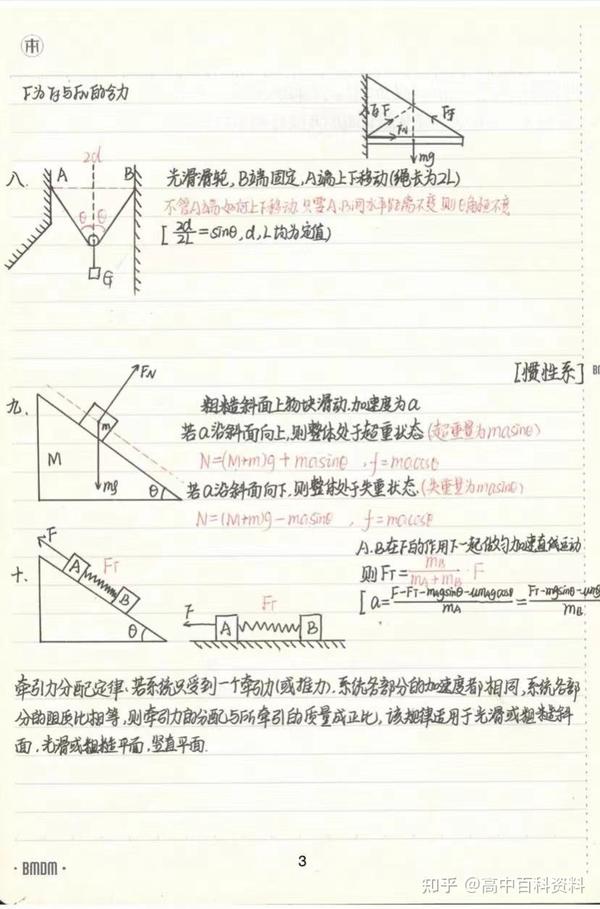 F为Ff与FN的合力
F
Ff
FN
mg
2d
A
B
θ
θ
G
八.
光滑滑轮,B端固定,A端上下移动(绳长为2L)
不管A端如何上下移动,只要A.B间水平距离不变,则θ角恒不变
[2d/2L=sinθ,d,L均为定值)
[惯性系]
九.
FN
m
M
mg
θ
粗糙斜面上物块滑动.加速度为a
若a沿斜面向上,则整体处于超重状态(超重量为masinθ)
N=(M+m)g+masinθ,f=macosθ
若a沿斜面向下,则整体处于失重状态.(失重量为masinθ)
N=(M+m)g-masinθ,f=macosθ
十.
F
A
FT
B
θ
F
A
FT
B
A.B在F的作用下一起做匀加速直线运动
则FT=mB/(mA+mB)·F
[a=(F-FT-mAgsinθ-μmAgcosθ)/mA=
牵引力分配定律.若系统只受到一个牵引力(或推力).系统各部分的加速度都相同,系统各部
分的阻质比相等,则牵引力的分配与所牵引的质量成正比,该规律适用于光滑或粗糙斜
面.光滑或粗糙平面,竖直平面.
·BMDM·
3
知乎 @高中百科资料